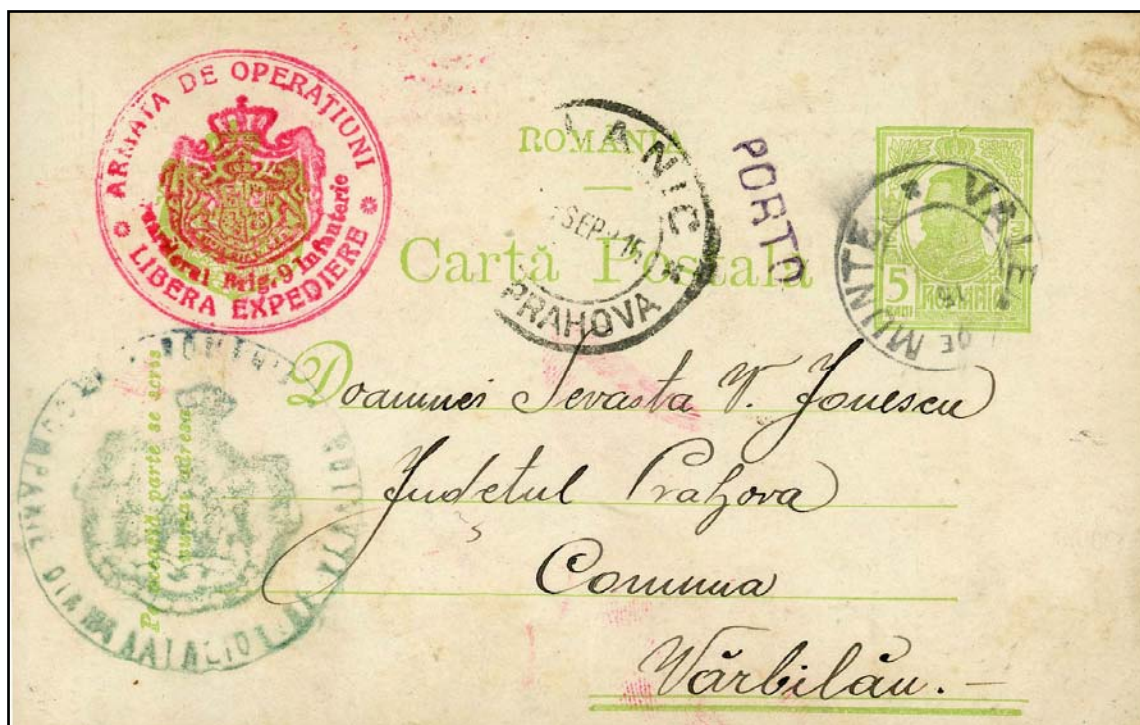 ARMATA DE OPERAȚIUNI
Brig. 9 Infanterie
LIBERA EXPEDIERE
ROMANIA
Carta Postala
LANIC
SEP
PRAHOVA
PORTO
VALE
DE MUNTE
5
BANI
ROMANIA
Pe această parte se scrie
numai adresa
Doamnei Sevasta V. Jonescu
Județul Prahova
Comuna
Vărbilău.—